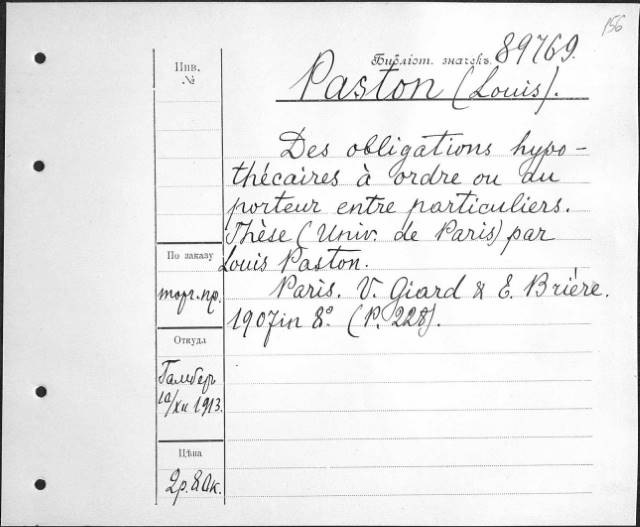 156
Библіот. значекъ. 89769.
Paston (Louis).
Инв.
№
Des obligations hypo-
thécaires à ordre ou au
porteur entre particuliers.
Thèse (Univ. de Paris) par
Louis Paston.
Paris. V. Giard & E. Brière.
1907 in 8°. (P. 228).
По заказу
торг. пр.
Откуда
Гамбер
10/XII 1913.
Цѣна
2р. 80к.